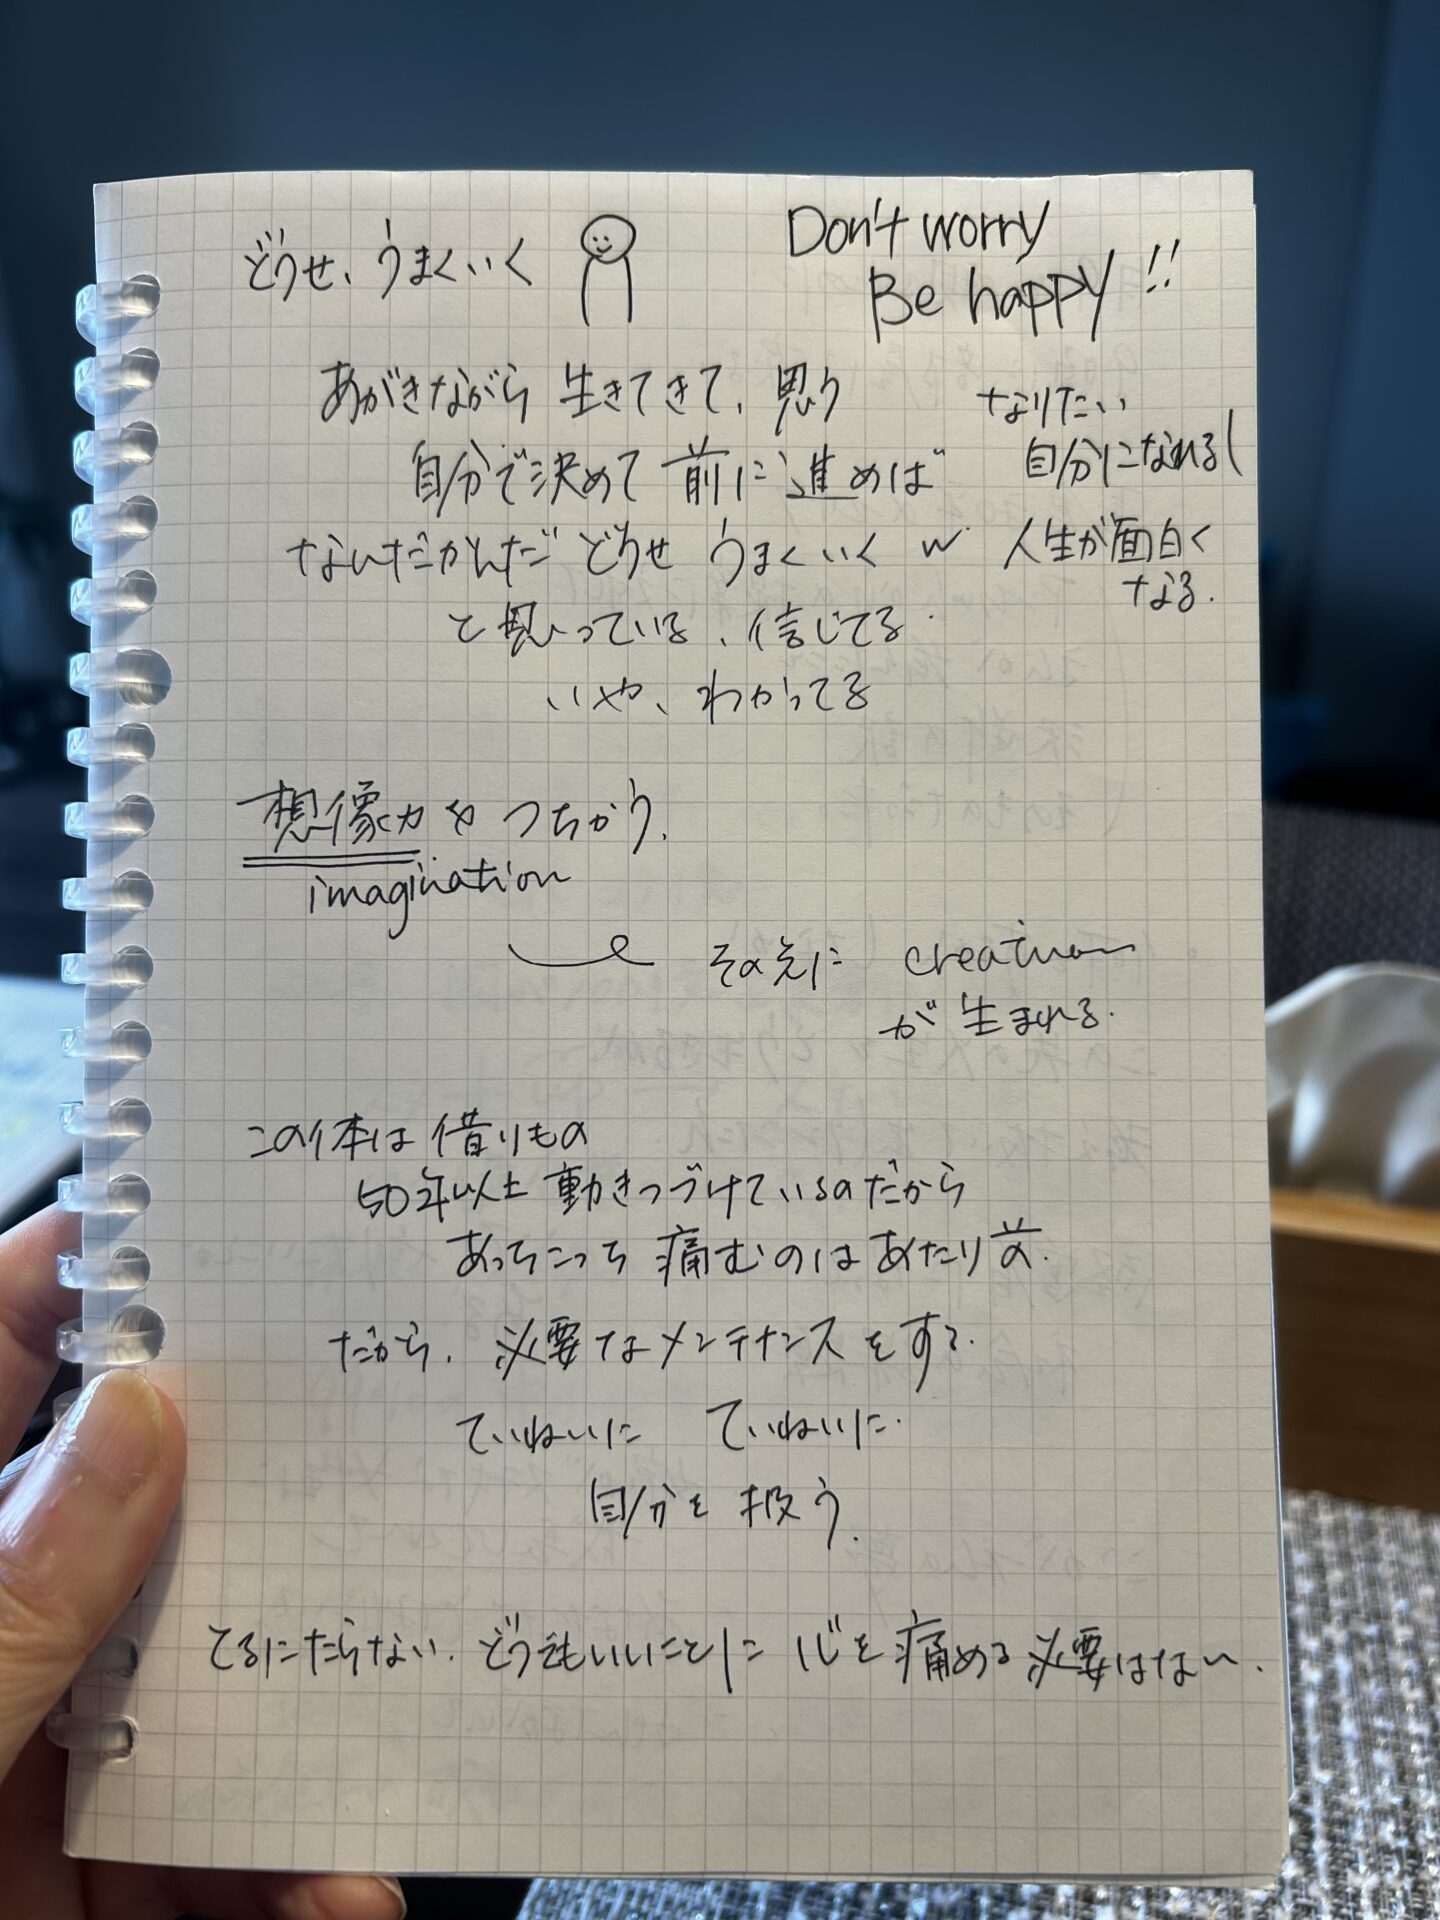 どうせ、うまくいく
Don't worry
Be happy!!
あがきながら 生きてきて、思う
自分で決めて 前に進めば
なんだかんだ どうせ うまくいく w
と思っている、信じてる.
いや、わかってる
なりたい
自分になれるし
人生が面白く
なる.
想像力をつちかう.
imagination
その先に creation
が生まれる.
この体は借りもの
50年以上動きつづけているのだから
あっちこっち 痛むのは あたり前.
だから、必要なメンテナンスをする.
ていねいに ていねいに.
自分を扱う.
とるにたらない、どうでもいいことに 心を痛める必要はない.